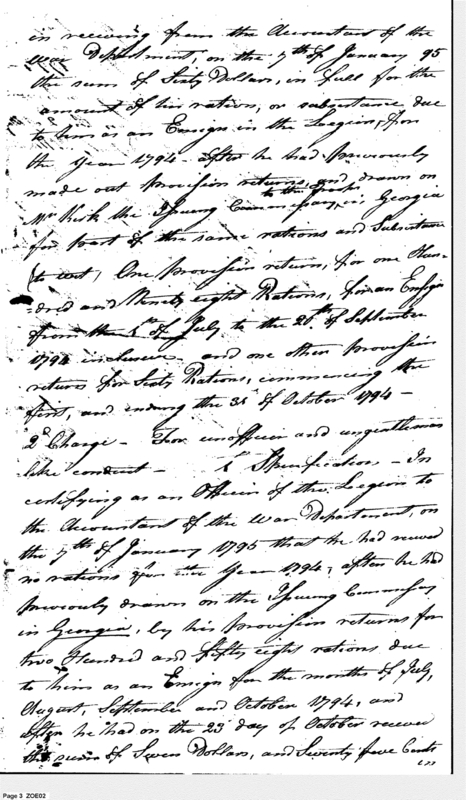 in receiving from the Accountant of the
War Department, on the 7th of January 95
the sum of Sixty Dollars, in full for the
amount of his rations, or subsistance due
to him as an Ensign in the Legion, for
the Year 1794 - after he had previously
made out provision returns, and drawn on
to the
Mr Kirk the Issuing Commissary, in Georgia
for part of the same rations and Subsistance
(to wit, One provision return, for one Hun-
-dred and Ninety eight Rations, for an Ensign
from the 1st of July, to the 20th of September
1794 inclusive and one other provision
return for Sixty Rations, commencing the
first, and ending the 31 of October 1794 -
2d Charge - For unofficer and ungentleman
like conduct - 1st Specification - In
certifying as an Officer of the Legion to
the Accountant of the War Department, on
the 7th of January 1795 that he had received
no rations for the Year 1794, after he had
previously drawn on the Issuing Commissary
in Georgia, by his provision returns for
two Hundred and fifty eight rations due
to him as an Ensign for the months of July,
August, September and October 1794, and
after he had on the 23 day of October received
the sum of Seven Dollars, and Seventy five Cents
Page 3 ZOE02